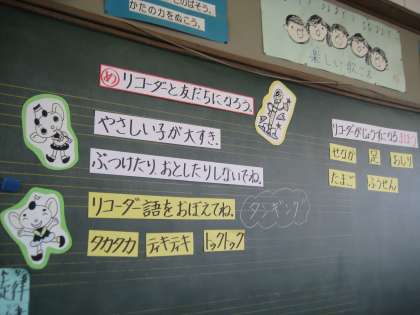 かたの力をぬこう。
楽しい歌声
め リコーダーと友だちになろう。
やさしい子が大すき。
ぶつけたり、おとしたりしないでね。
リコーダー語をおぼえてね。
タンギング
タカタカ ティキティキ トゥクトゥク
リコーダーがじょうずになる
せなか 足 おしり
たまご ふうせん